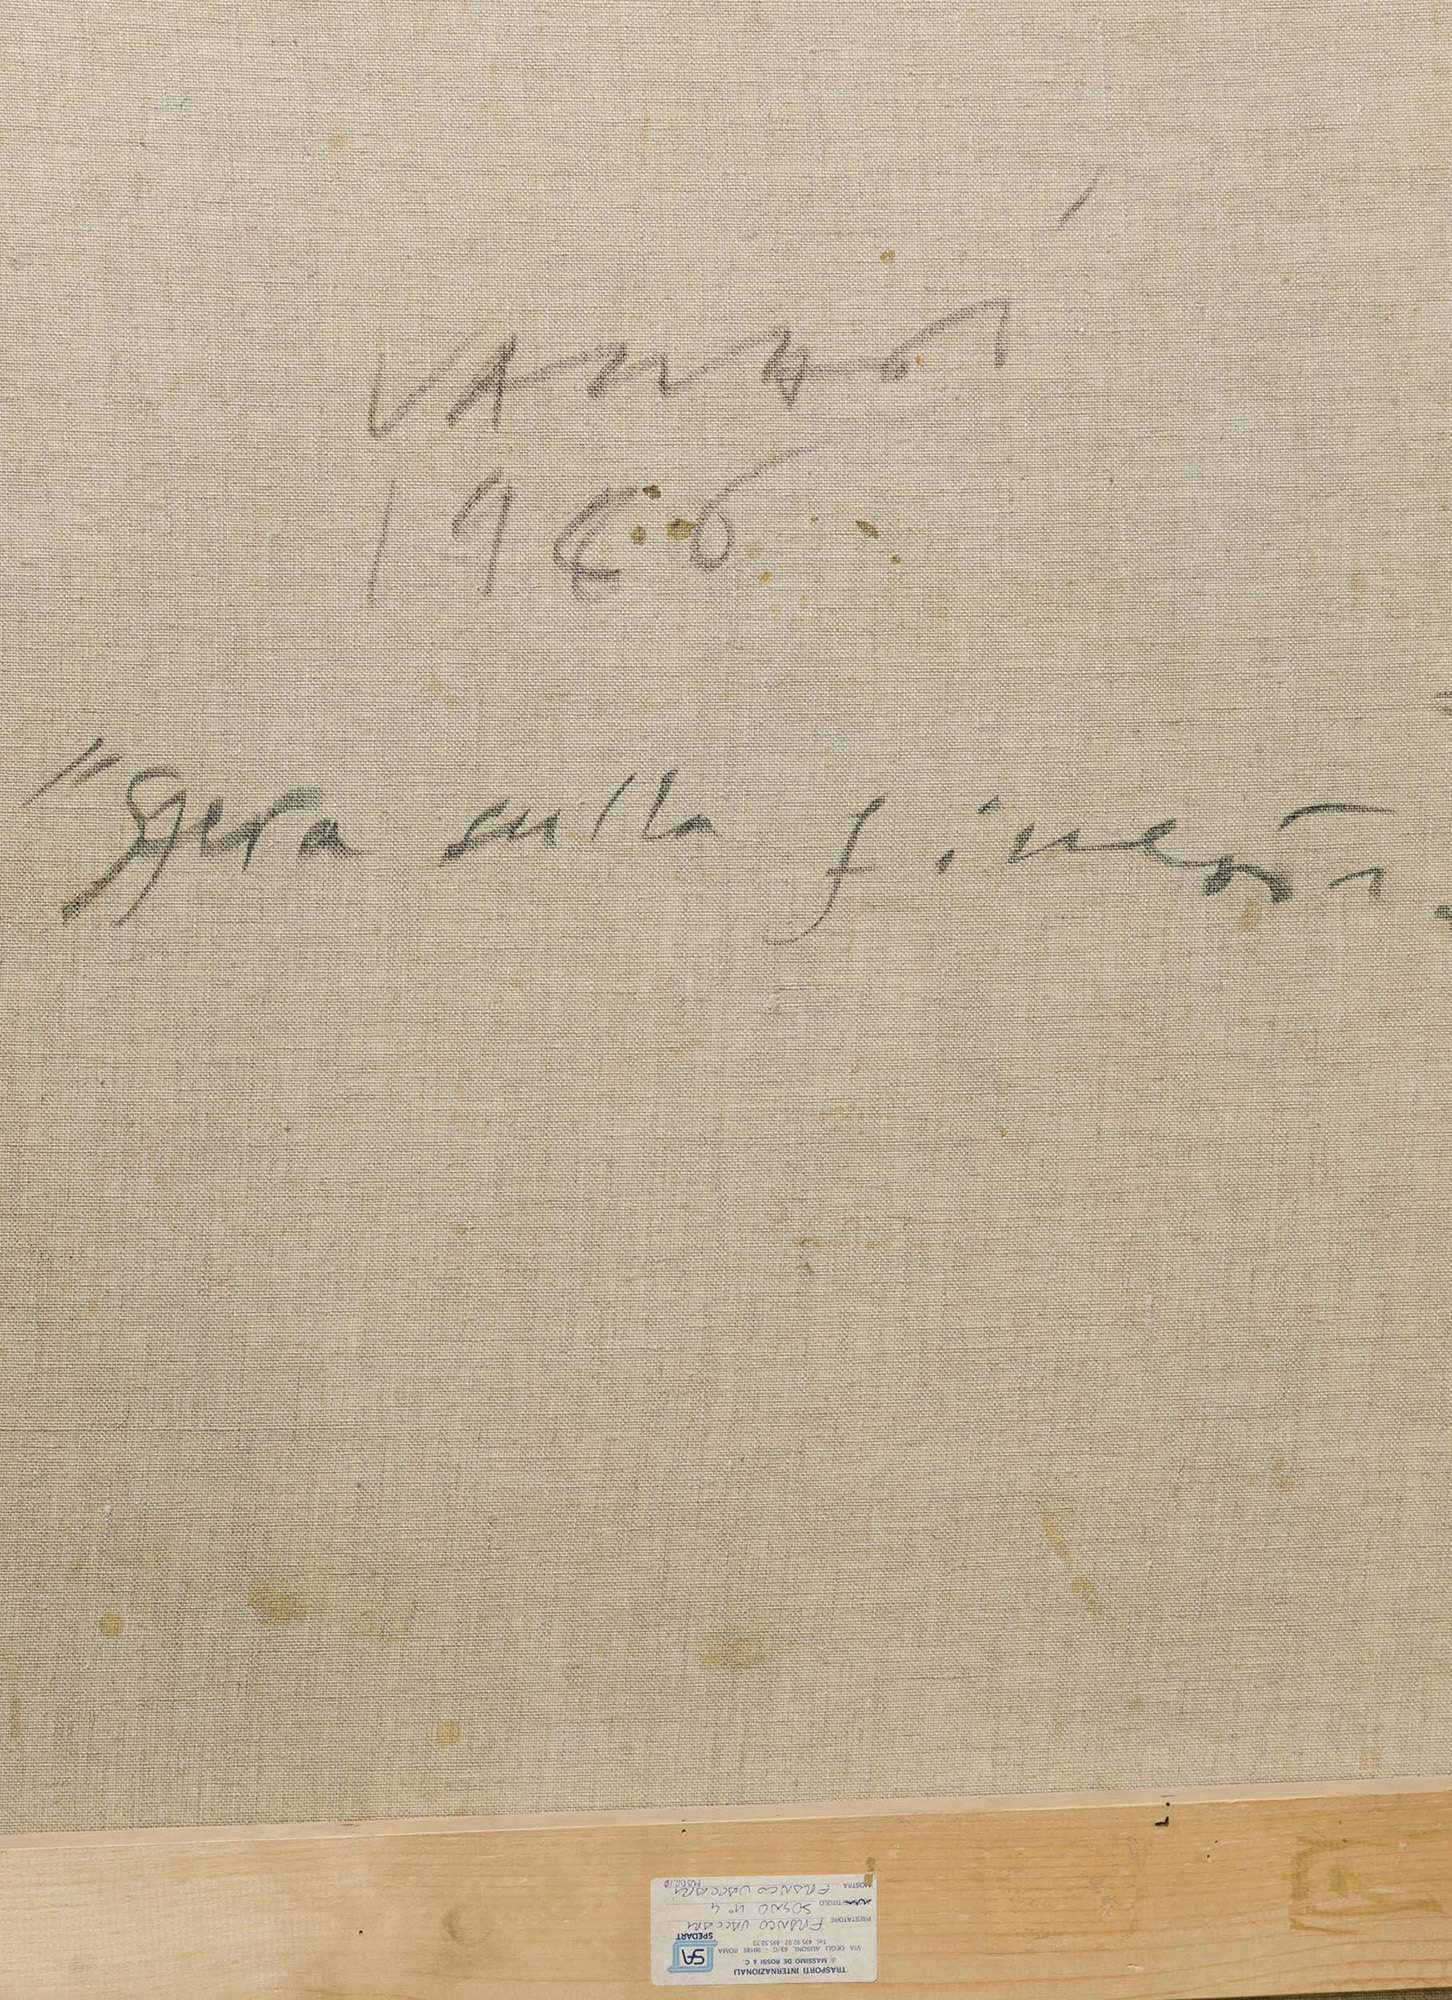 VANGI
1986
"Sfera sulla finestra
TRASPORTI INTERNAZIONALI
di MASSIMO DE ROSSI & C.
VIA DEGLI AUSONI, 63/C - 00185 ROMA
Tel. 495.92.92 - 495.52.73
SA
SPEDART
PRESTATORE FRANCO VACCARI
TITOLO SOGNO N° 4
MOSTRA FRANCO VACCARI